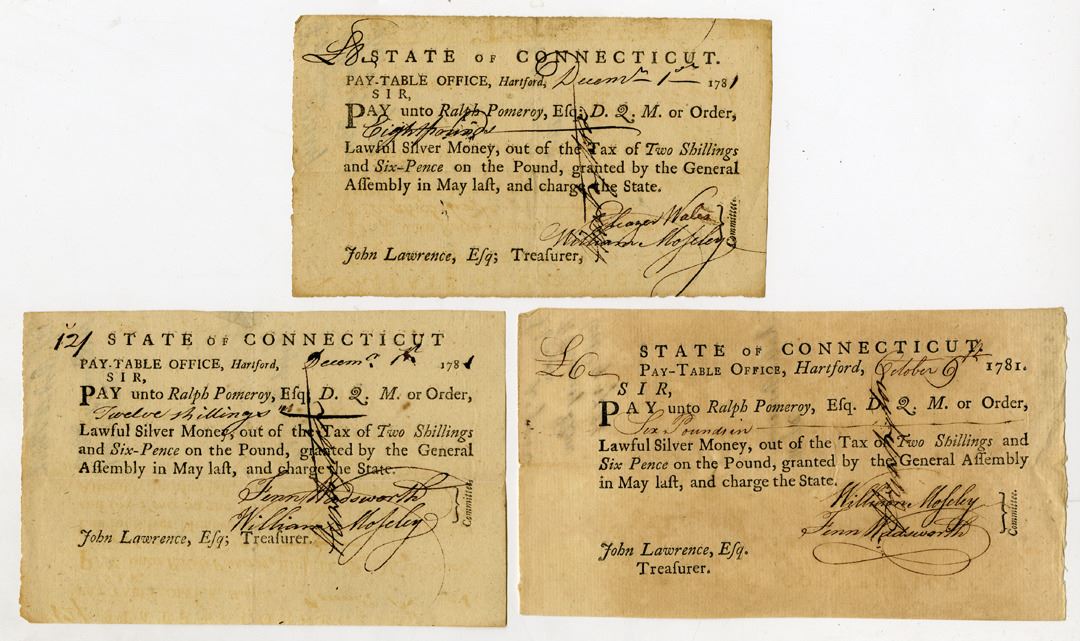 £8., STATE OF CONNECTICUT.
PAY-TABLE OFFICE, Hartford, Decemr 1st 1781
SIR,
PAY unto Ralph Pomeroy, Esq; D. Q. M. or Order,
Eight pounds
Lawful Silver Money, out of the Tax of Two Shillings
and Six-Pence on the Pound, granted by the General
Aſſembly in May laſt, and charge the State.
Eleazer Wales
William Moſeley
Committee.
John Lawrence, Eſq; Treaſurer,
12/ STATE OF CONNECTICUT
PAY-TABLE OFFICE, Hartford, Decemr 1st 1781
SIR,
PAY unto Ralph Pomeroy, Eſq; D. Q. M. or Order,
Twelve shillings
Lawful Silver Money, out of the Tax of Two Shillings
and Six-Pence on the Pound, granted by the General
Aſſembly in May laſt, and charge the State.
Fenn Wadsworth
William Moſeley
Committee.
John Lawrence, Eſq; Treaſurer.
£6 STATE OF CONNECTICUT.
PAY-TABLE OFFICE, Hartford, October 9th 1781.
SIR,
PAY unto Ralph Pomeroy, Eſq. D. Q. M. or Order,
Six Pounds in
Lawful Silver Money, out of the Tax of Two Shillings and
Six Pence on the Pound, granted by the General Aſſembly
in May laſt, and charge the State.
William Moſeley
Fenn Wadsworth
Committee.
John Lawrence, Eſq.
Treaſurer.